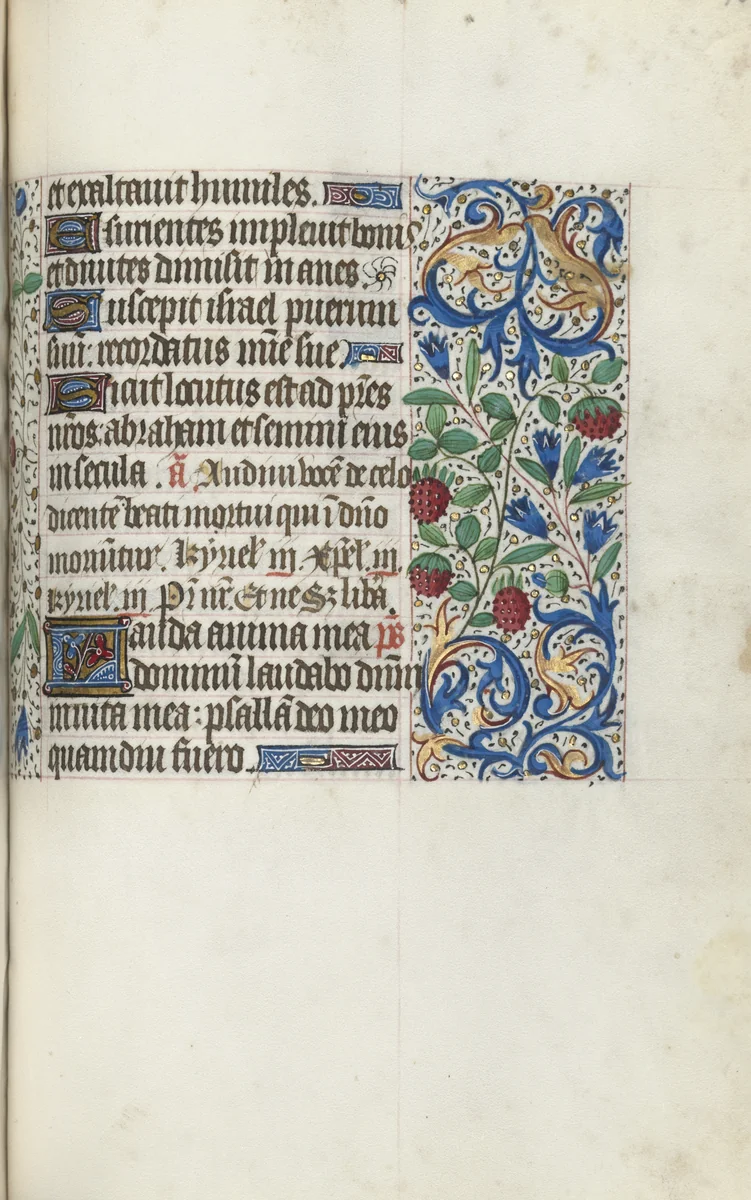 et exaltauit humiles.
Esurientes impleuit bonis
et diuites dimisit in anes
Suscepit israel puerum
suū: recordatus mīe sue
Sicut locutus est ad pr̄es
nr̄os: abraham et semini eius
in secula. ā. Audiui vocē de celo
dicentē beati mortui qui ī dn̄o
moriūtur. Kyriel̄ iij. Xp̄el̄ iij.
Kyriel̄ iij Pr̄ nr̄. Et ne Sȝ libā.
Lauda anima mea ps̄
dominū laudabo dn̄m
in uita mea: psallā deo meo
quamdiu fuero.